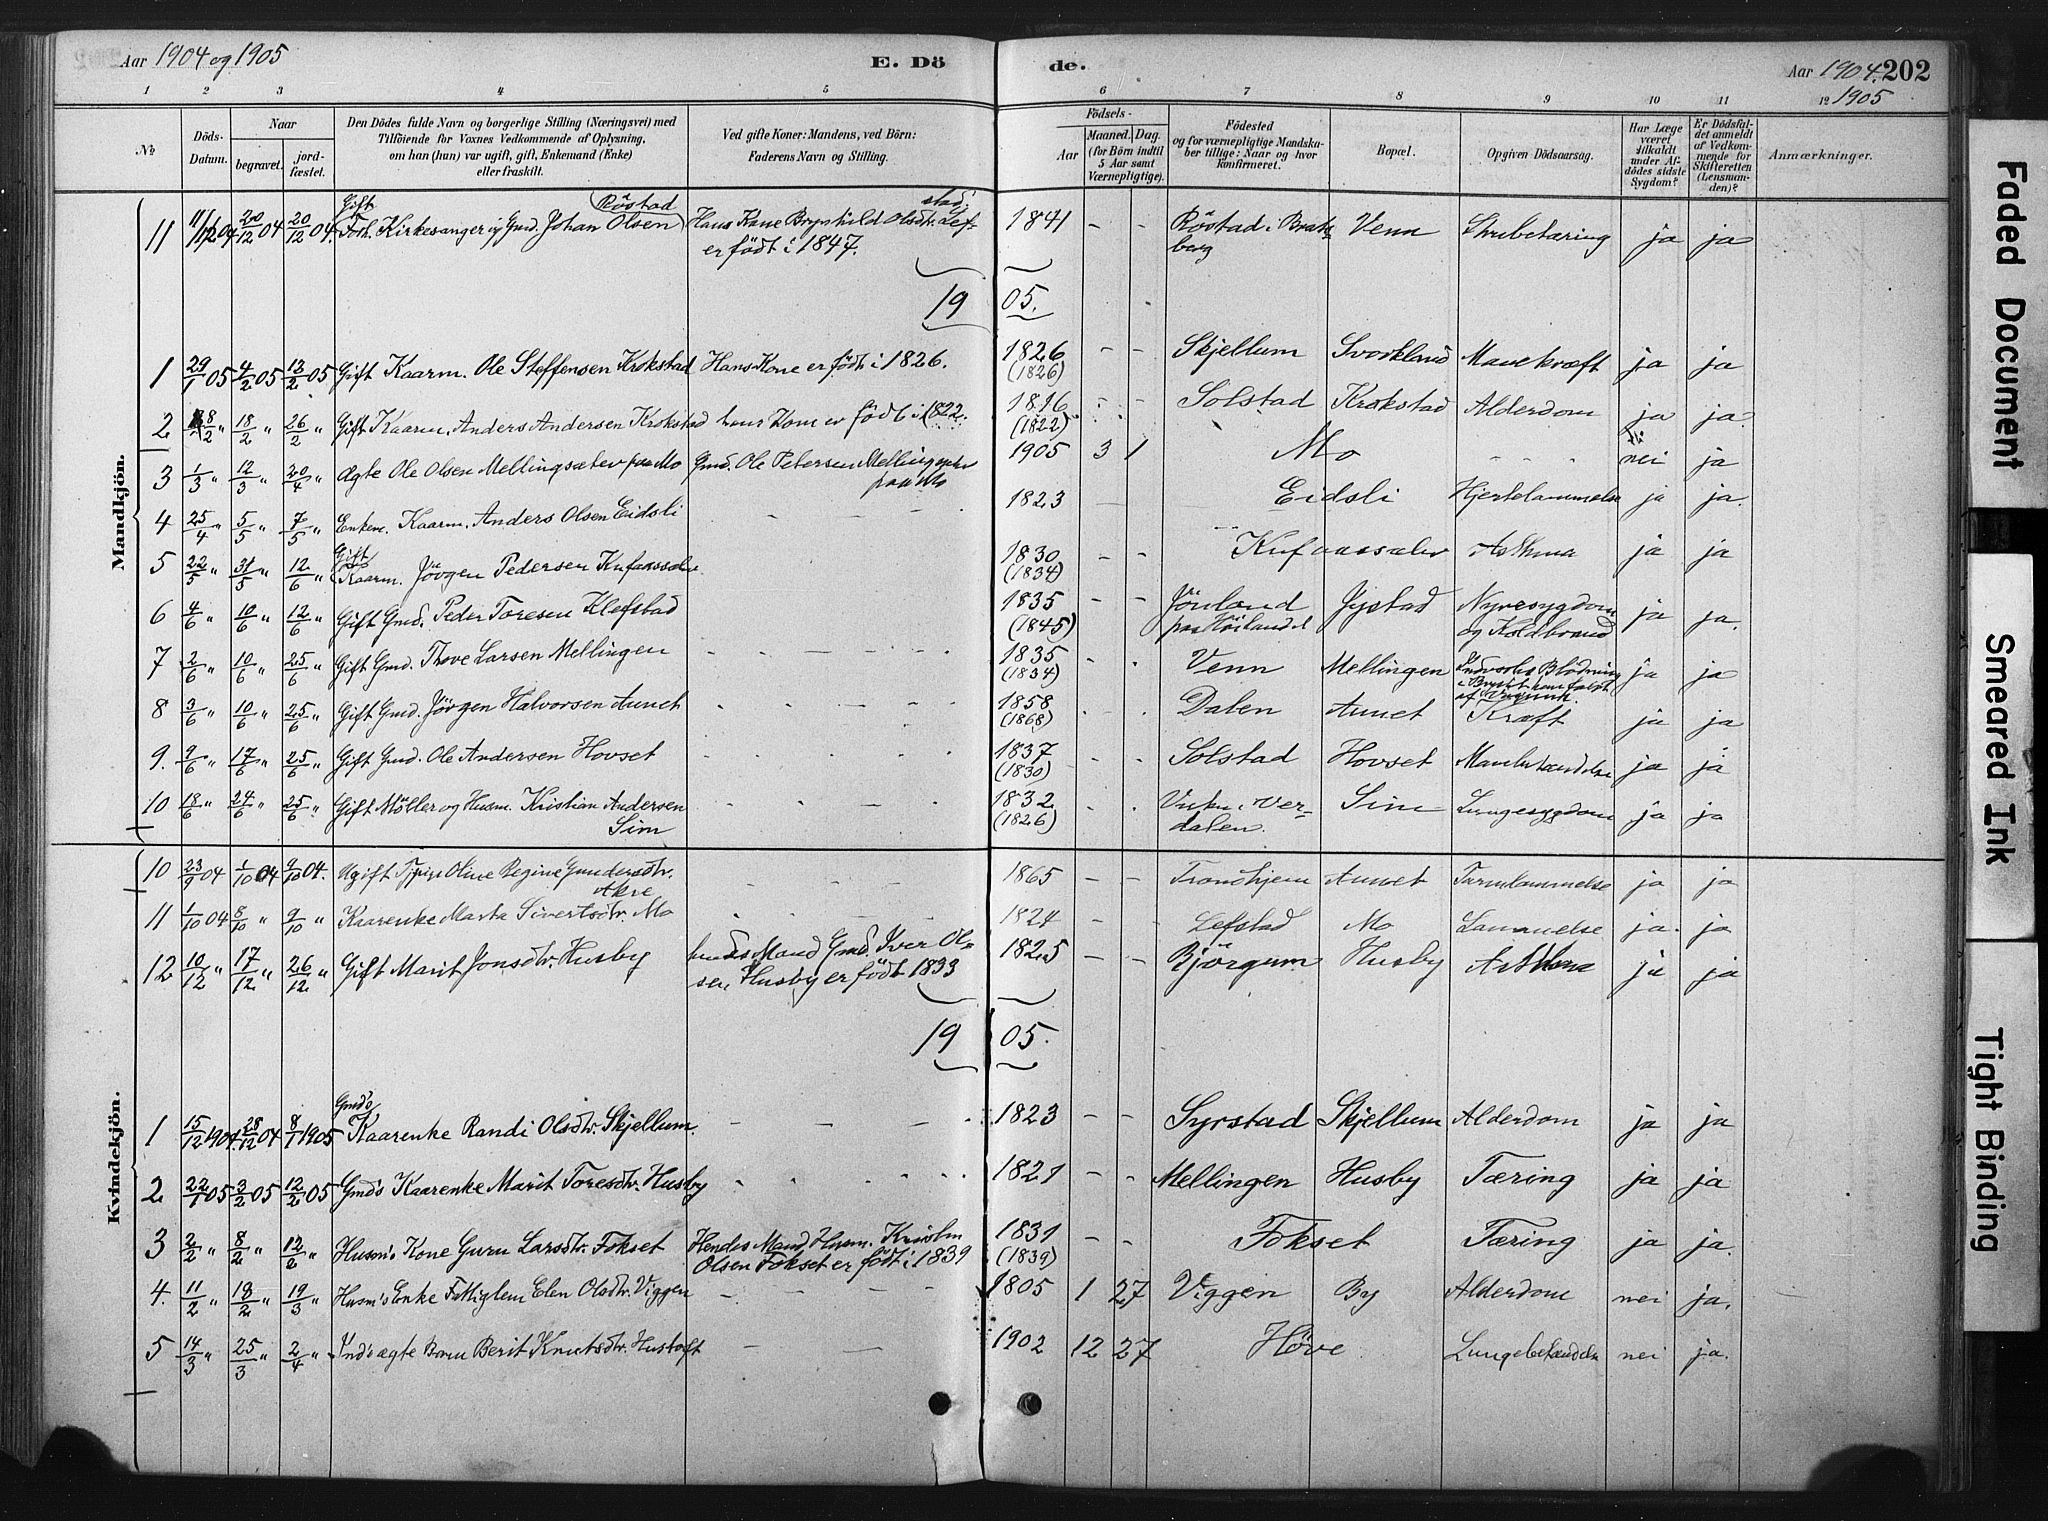 Aar 1904 og 1905
E. Dö
de.
Aar 1904. 202
1905
1 2 3 4 5 6 7 8 9 10 11 12
No.
Döds-Datum.
Naar
begravet.
jord-fæstet.
Den Dödes fulde Navn og borgerlige Stilling (Næringsvei) med
Tilföiende for Voxnes Vedkommende af Oplysning,
om han (hun) var ugift, gift, Enkemand (Enke)
eller fraskilt.
Ved gifte Koner: Mandens, ved Börn:
Faderens Navn og Stilling.
Födsels-
Aar
Maaned. Dag.
(for Börn indtil
5 Aar samt
Værnepligtige).
Födested
og for værnepligtige Mandska-
ber tillige: Naar og hvor
konfirmeret.
Bopæl.
Opgiven Dödsaarsag.
Har Læge
været
tilkaldt
under Af-
dödes sidste
Sygdom?
Er Dödsfal-
det anmeldt
af Vedkom-
mende for
Skifteretten
(Lensman-
den)?
Anmærkninger.
Mandkjön.
Gift Röstad stad,
11 11/12 04 20/12 04 20/12 04. Forh. Kirkesanger og Gmd. Johan Olsen Hans Kone Brynhild Olsdtr. Lef- 1841 – – Röstad i Brats- Venn Strubetæring ja ja
er födt i 1847. berg
19 05.
1 29/1 05 4/2 05 12/2 05 Gift Kaarm. Ole Steffensen Krokstad Hans Kone er födt i 1826. 1826 – – Skjellum Svorkland Mavekræft ja ja
(1826)
2. 8/2 " 18/2 " 26/2 " Gift Kaarm. Anders Andersen Krokstad hans Kone er födt i 1822. 1816 Solstad Krokstad Alderdom ja ja.
(1822)
3 1/3 " 12/3 " 20/4 " Ægte Ole Olsen Mellingsæter paa Mo Gmd. Ole Petersen Mellingsæter 1905 3 1 Mo nei ja
paa Mo
4 25/4 " 5/5 " 7/5 " Enkem. Kaarm. Anders Olsen Eidsli – – – 1823 — Eidsli Hjertelammelse ja ja.
Gift
5 22/5 " 31/5 " 12/6 " Kaarm. Jörgen Pedersen 1830 – – Asthma ja ja
(1834)
6 4/6 " 10/6 " 12/6 " Gift Gmd. Peder Toresen Klefstad 1835 – – Jystad Nyresygdom ja ja.
(1845) og Koldbrand
7 2/6 " 10/6 " 25/6 " Gift Gmd. Thore Larsen Mellingen 1835 Venn Mellingen Indvortes Blödning ja ja
(1834)
8 3/6 " 10/6 " 25/6 " Gift Gmd. Jörgen Halvorsen Aunet 1858 Dalen Aunet Kræft ja ja
(1868)
9. 9/6 " 17/6 " 25/6 " Gift Gmd. Ole Andersen Hovset 1837 Solstad Hovset ja ja
(1830)
10 18/6 " 24/6 " 25/6 " Gift Möller og Husm. Kristian Andersen 1832 Vuku i Ver- Sim Lungesygdom ja ja
Sim (1826) dalen.
Kvindekjön.
10 23/9 04 1/10 04 9/10 04. Ugift Oline Regine Gundersdtr. 1865 – – Trondhjem Aunet Tarmlammelse ja ja
11 1/10 04 8/10 " 9/10 " Kaarenke Marta Sivertsdtr. Mo 1824 – – Lefstad Mo Lammelse ja. ja
12 10/12 " 17/12 " 26/12 " Gift Marit Jonsdtr. Husby hendes Mand Gmd. Iver Ol- 1825 – – Björgum Husby Asthma ja ja
sen Husby er födt 1833
19 05.
Gmds
1 15/12 1904. 28/12 04 8/1 1905 Kaarenke Randi Olsdtr. Skjellum. 1823 – – Syrstad Skjellum Alderdom ja ja
2. 22/1 05 3/2 05 12/2 05 Gmds Kaarenke Marit Toresdtr. Husby 1821 – – Mellingen Husby Tæring ja ja
3 2/2 " 8/2 " 12/2 " Husm's Kone Guru Larsdtr. Fokset Hendes Mand Husm. Kristen 1831 – – Fokset Tæring ja ja.
Olsen Fokset er födt i 1839 (1839)
4. 11/2 " 18/2 " 19/3 " Husm's Enke Fattiglem Elen Olsdtr. Viggen 1805 1 27 Viggen By Alderdom nei ja.
5 14/3 " 25/3 " 2/4 " Ind's ægte Barn Berit Knutsdtr. Hustoft 1902 12 27 Höve Lungebetændelse nei ja.
Faded Document
Smeared Ink
Tight Binding